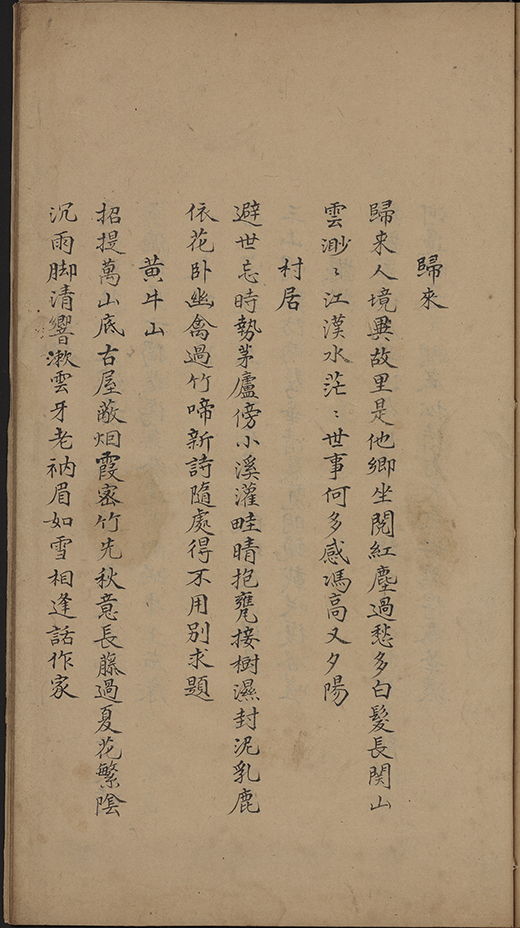 歸來
歸來人境異故里是他鄉坐閱紅塵過愁多白髮長関山
雲渺〻江漢水茫〻世事何多感馮高又夕陽
村居
避世忘時勢茅廬傍小溪灌畦晴抱甕接樹濕封泥乳鹿
依花卧幽禽過竹啼新詩隨處得不用別求題
黄牛山
招提萬山底古屋敝烟霞密竹先秋意長藤過夏花繁陰
沉雨脚清響漱雲牙老衲眉如雪相逢話作家